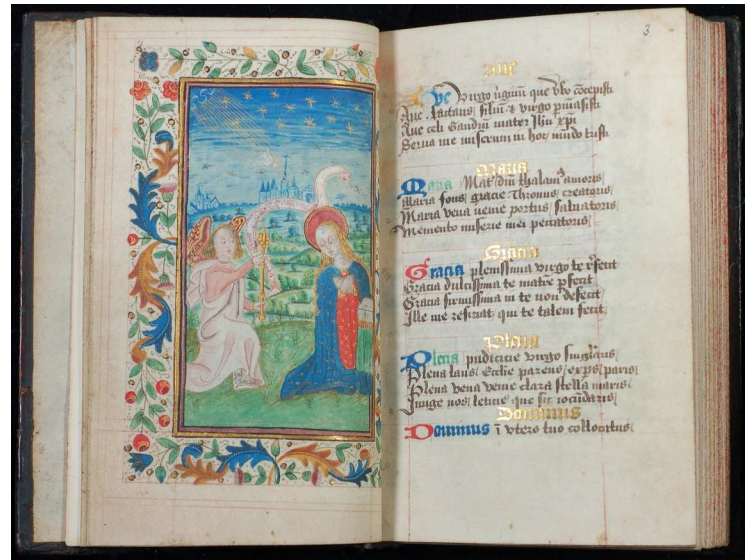 3
Ave
Ave Virgo
Ave lactans filiū & virgo
Ave celi Gaudiū mater Jhū xpi
Serua me miserum in hoc mūdo tristi
Maria
Maria Mat̄ dm̄ thalam⁹ amoris
Maria fons gracie Thronus creatoris
Maria vena venie portus saluatoris
Memento miserie mei peccatoris
Gracia
Gracia plenissima virgo te
Gracia dulcissima te matrē p̄fecit
Gracia firmissima in te non defecit
Ille me reficiat qui te talem fecit
Plena
Plena pudicicie virgo singl̄aris
Plena lacus Ecclie parens expͫs paris
Plena vena venie clara stella maris
Iunge nos leticie que sit iocūdaris
Dominus
Dominus ī vtero tuo collocatus